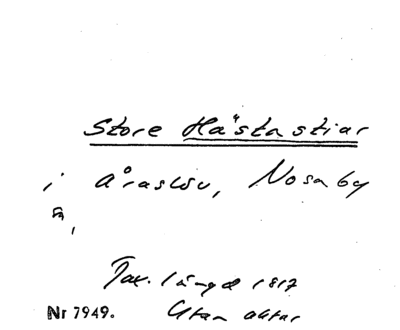 Store Hästastiar
i Åraslöv, Nosaby
sn,
Tax. längd 1817
Nr 7949. Utan aktar